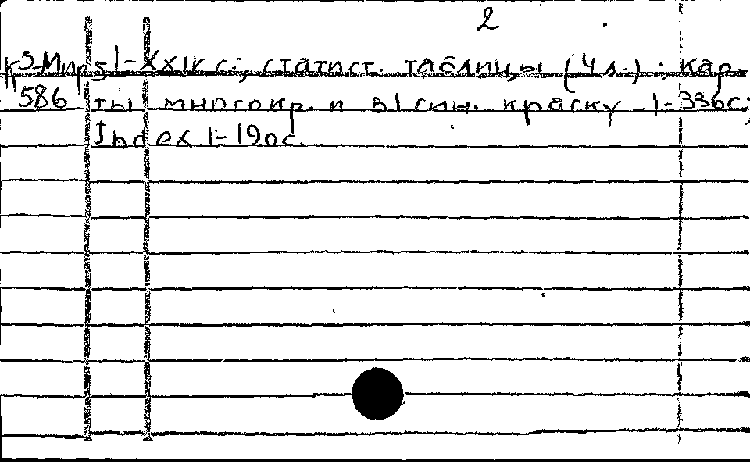 2
К 5-Мир 5 I-XXIX с.; статист. таблицы (4 л.); кар-
586 ты многокр. и в 1 син. краску. 1-336 с;
Index 1-190 с.